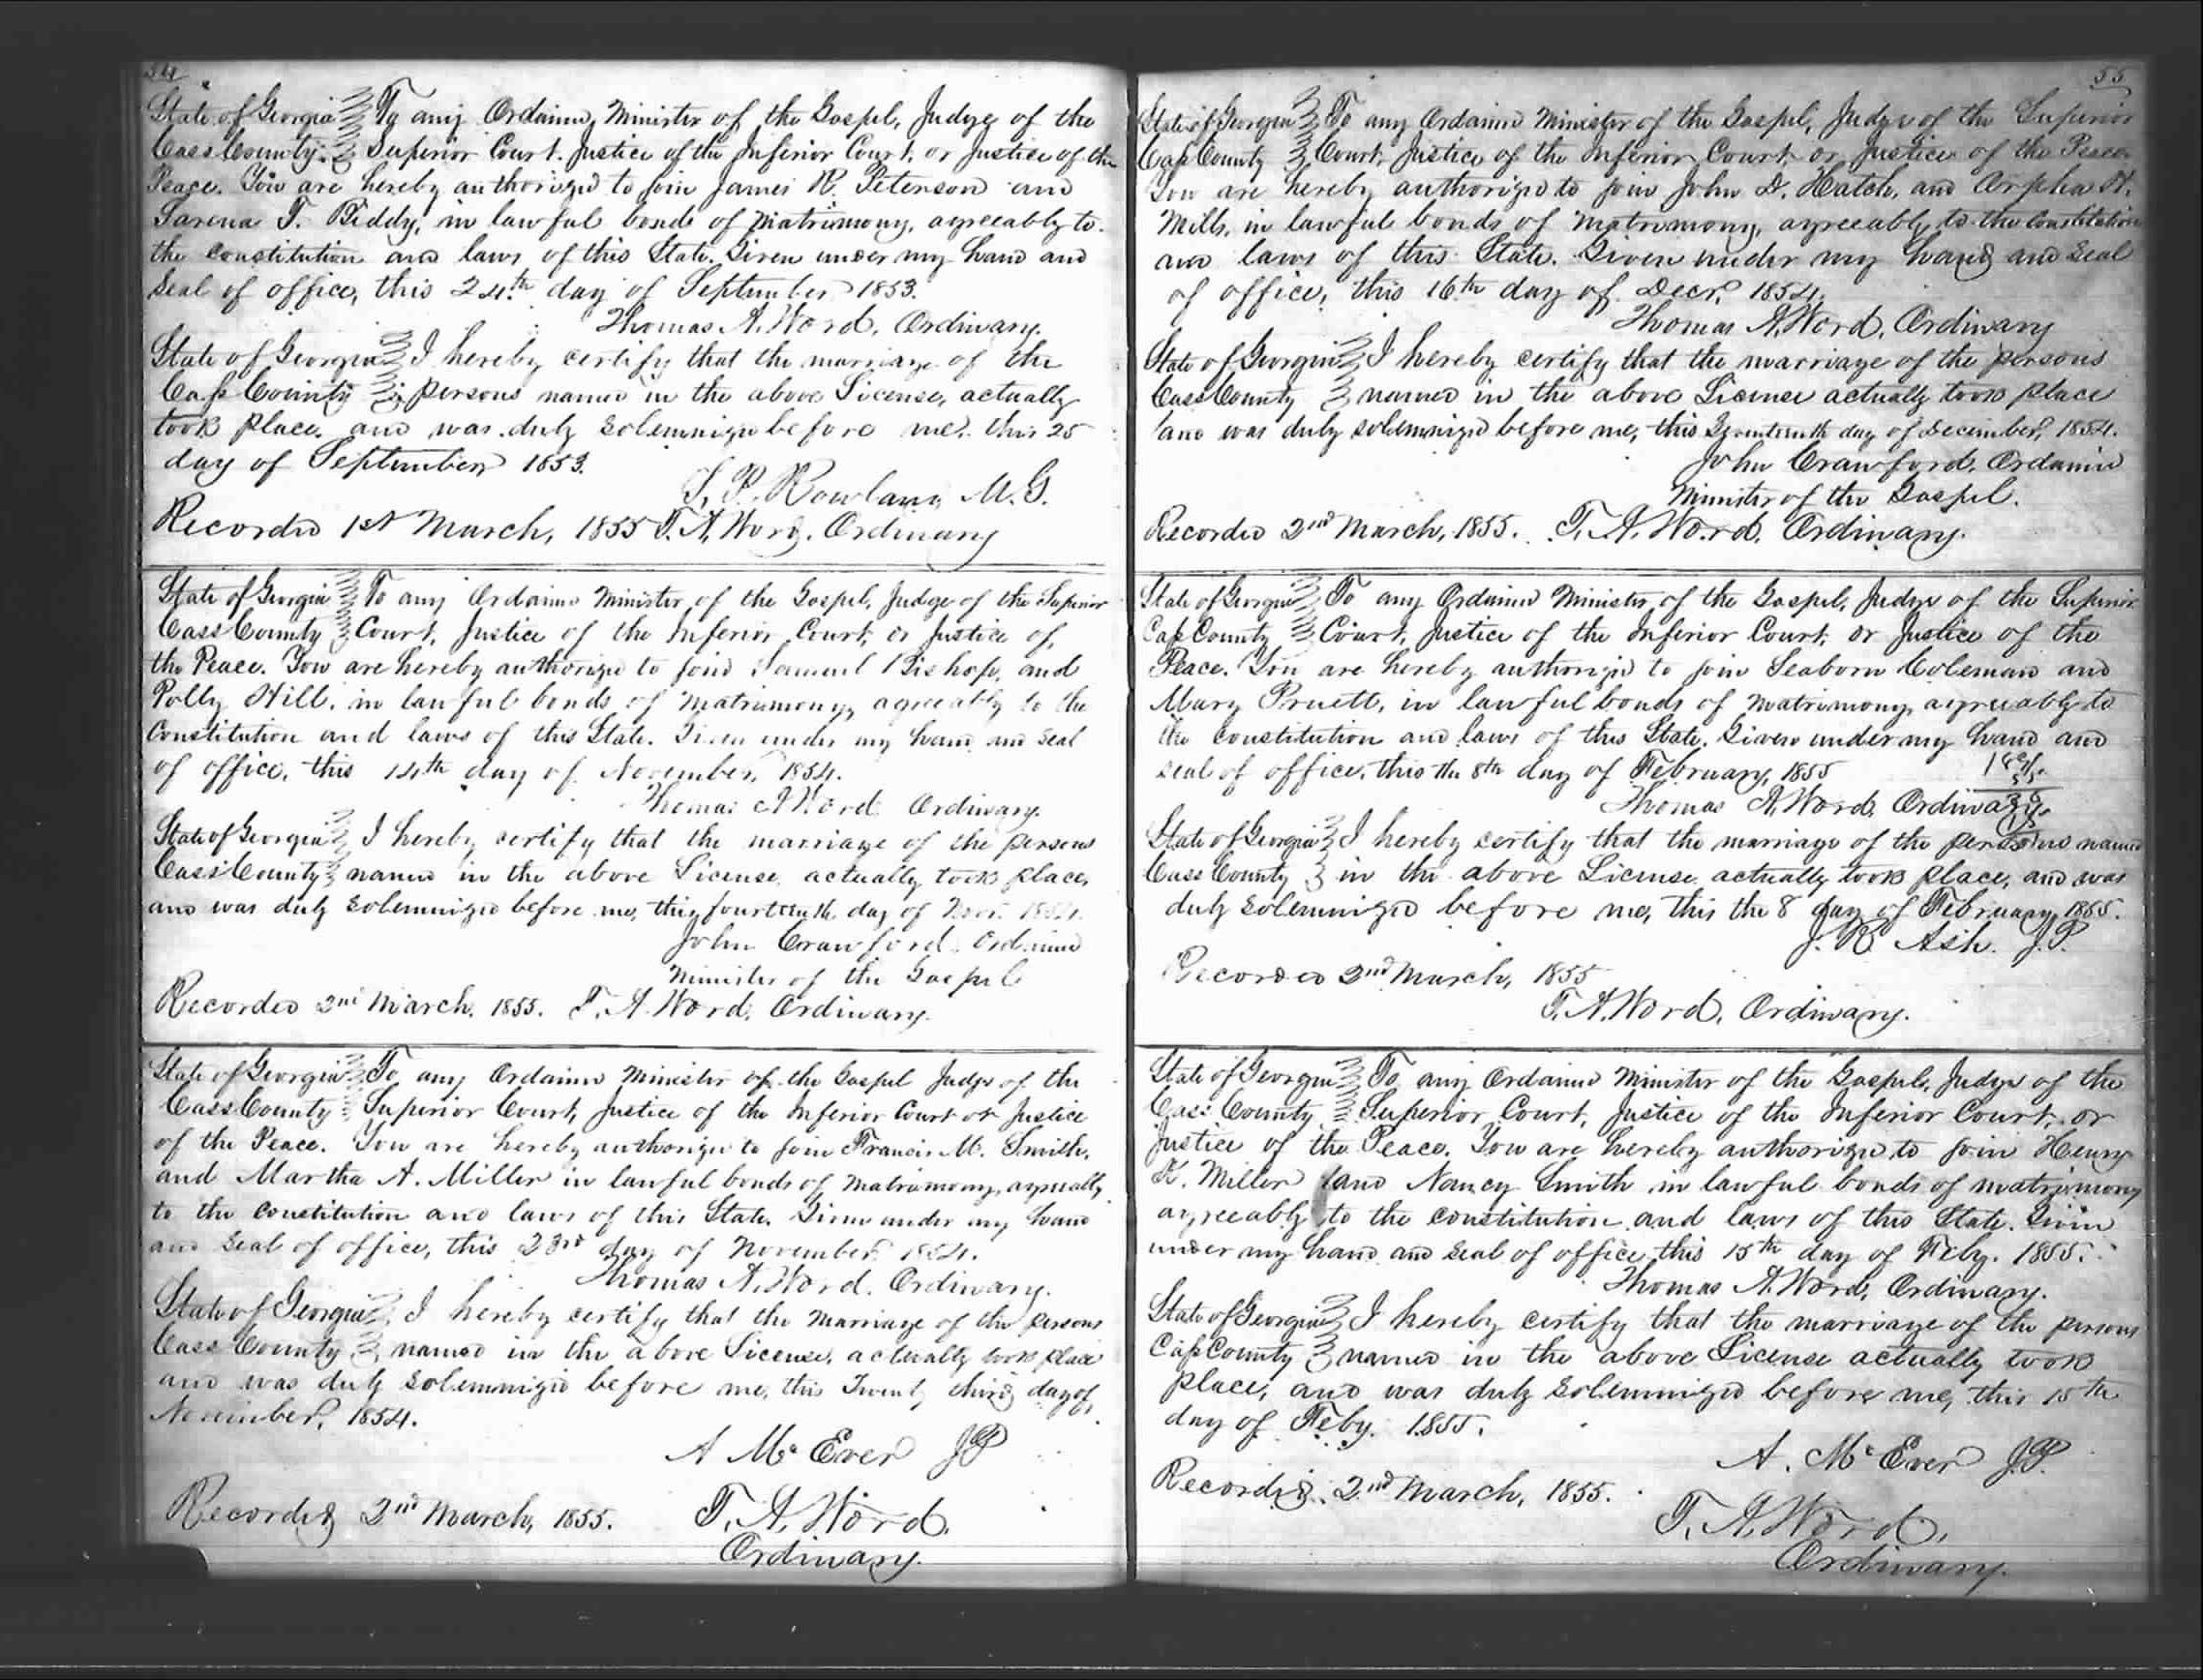 54
State of Georgia To any Ordained Minister of the Gospel, Judge of the
Cass County. Superior Court. Justice of the Inferior Court, or Justice of the
Peace. You are hereby authorized to join James R. Peterson and
Sarena T. Biddy, in lawful bonds of Matrimony, agreeably to
the constitution and laws of this State. Given under my hand and
seal of office, this 24th day of September 1853.
Thomas A. Word, Ordinary.
State of Georgia I hereby certify that the marriage of the
Cass County persons named in the above License, actually
took place, and was duly solemnized before me. this 25
day of September 1853.
Rowland M.G.
Recorded 1st March, 1855 T. A. Word. Ordinary
State of Georgia To any Ordained Minister of the Gospel, Judge of the Superior
Cass County Court, Justice of the Inferior Court, or Justice of
the Peace. You are hereby authorized to join Samuel Bishop, and
Polly Hill, in lawful bonds of Matrimony, agreeably to the
Constitution and laws of this State. Given under my hand and seal
of office, this 14th day of November, 1854.
Thomas A Word Ordinary.
State of Georgia I hereby certify that the marriage of the persons
Cass County named in the above License, actually took place,
and was duly solemnized before me, this fourteenth day of Novr. 1854.
John Crawford. Ordained
Minister of the Gospel
Recorded 2nd March, 1855. T. A. Word. Ordinary.
State of Georgia To any Ordained Minister of the Gospel Judge of the
Cass County Superior Court, Justice of the Inferior Court or Justice
of the Peace. You are hereby authorized to join Francis M. Smith,
and Martha A. Miller in lawful bonds of Matrimony, agreeably
to the constitution and laws of this State. Given under my hand
and seal of office, this 23rd day of November, 1854.
Thomas A. Word. Ordinary.
State of Georgia, I hereby certify that the marriage of the persons
Cass County named in the above License, actually took place
and was duly solemnized before me, this Twenty third day of
November, 1854.
A McEver JP
Recorded 2nd March, 1855. T. A. Word.
Ordinary.
55
State of Georgia To any Ordained Minister of the Gospel, Judge of the Superior
Cass County Court, Justice of the Inferior Court, or Justice of the Peace
You are hereby authorized to join John D. Hatch, and Orpha H.
Mills, in lawful bonds of matrimony, agreeably to the constitution
and laws of this State. Given under my hand and seal
of office, this 16th day of Decr, 1854.
Thomas A. Word, Ordinary
State of Georgia I hereby certify that the marriage of the persons
Cass County named in the above License actually took place
and was duly solemnized before me, this Seventeenth day of December, 1854.
John Crawford, Ordained
Minister of the Gospel.
Recorded 2nd March, 1855. T. A. Word. Ordinary.
State of Georgia To any Ordained Minister, of the Gospel, Judge of the Superior
Cass County Court, Justice of the Inferior Court, or Justice of the
Peace. You are hereby authorized to join Seaborn Coleman and
Mary Pruett, in lawful bonds of matrimony, agreeably to
the constitution and laws of this State. Given under my hand and
seal of office, this the 8th day of February, 1855
Thomas A. Word, Ordinary.
State of Georgia I hereby certify that the marriage of the persons named
Cass County in the above License actually took place, and was
duly solemnized before me, this the 8 day of February, 1855.
J. R. Ash. J.P.
Recorded 2nd March, 1855
T. A. Word, Ordinary.
State of Georgia To any Ordained Minister of the Gospel, Judge of the
Cass County Superior Court, Justice of the Inferior Court, or
Justice of the Peace. You are hereby authorized to join Henry
K. Miller and Nancy Smith in lawful bonds of matrimony
agreeably to the constitution and laws of this State. Given
under my hand and seal of office, this 15th day of Feby. 1855.
Thomas A. Word, Ordinary.
State of Georgia I hereby certify that the marriage of the persons
Cass County named in the above License actually took
place, and was duly solemnized before me, this 15th
day of Feby. 1855.
A. McEver J.P.
Recorded 2nd March, 1855.
T. A. Word,
Ordinary.